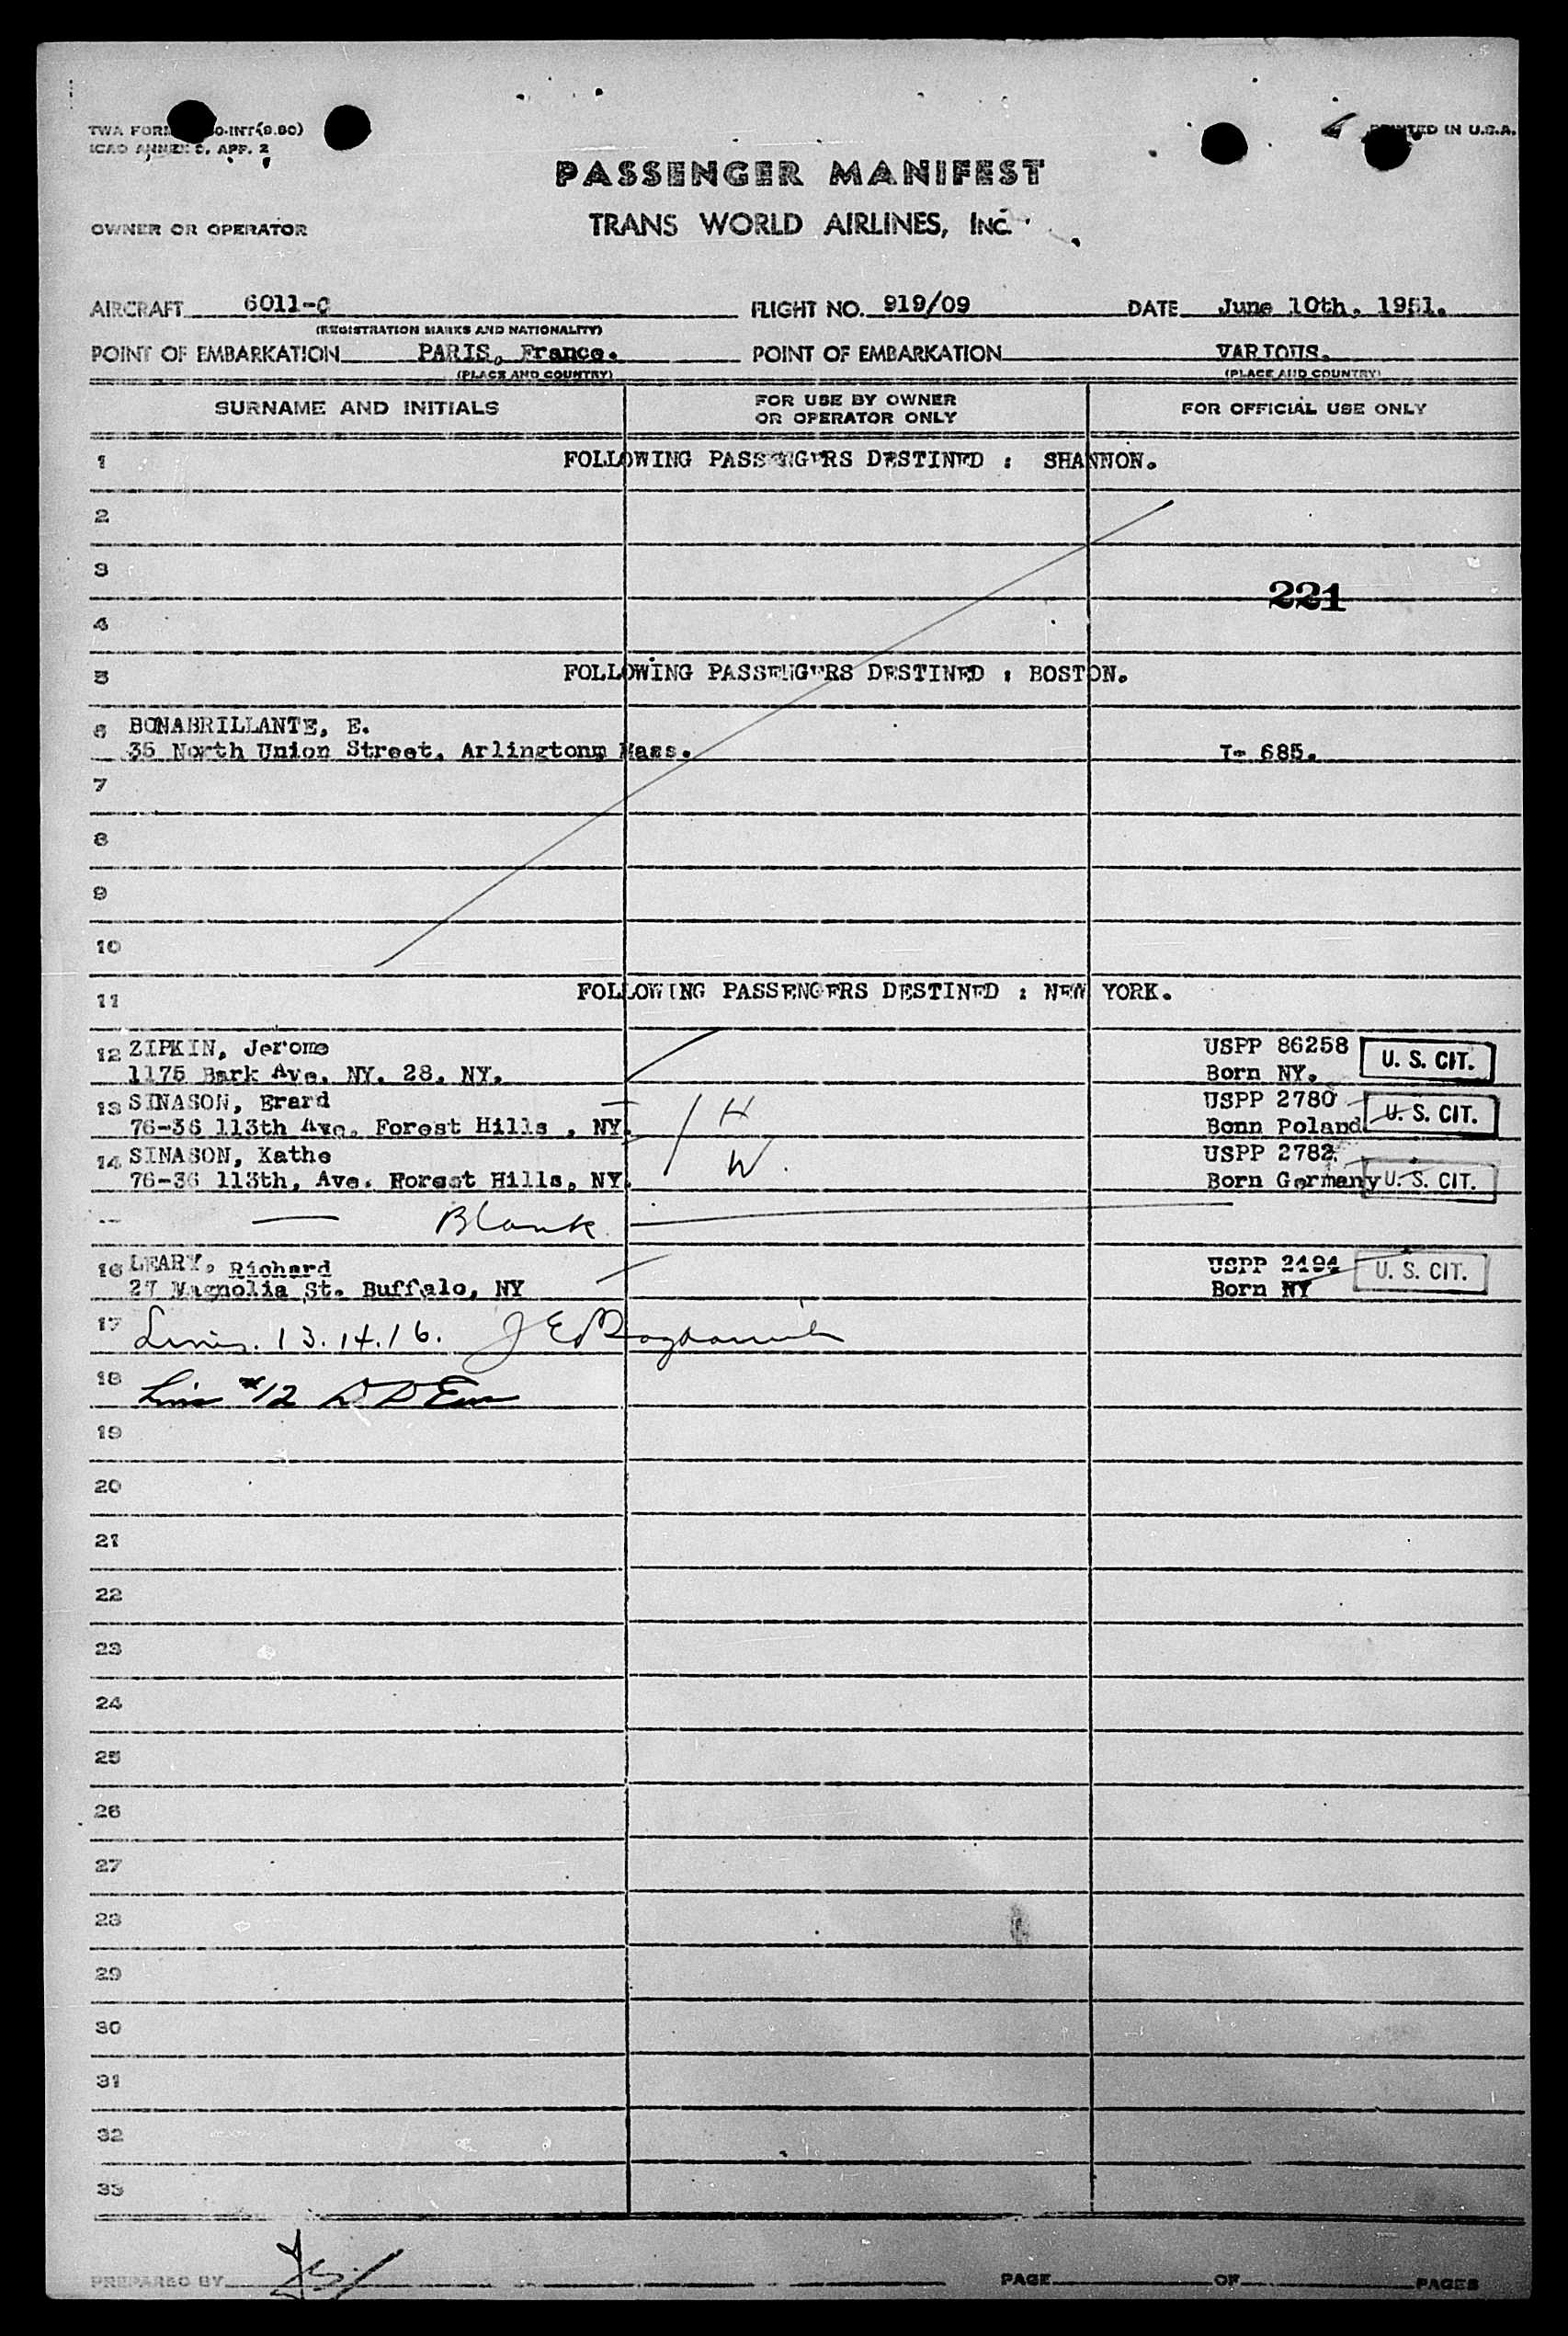 TWA FORM O-INT(9.50) PRINTED IN U.S.A.
ICAO ANNEX 9, APP. 2
PASSENGER MANIFEST
OWNER OR OPERATOR TRANS WORLD AIRLINES, Inc.
AIRCRAFT 6011-C FLIGHT NO. 919/09 DATE June 10th, 1951.
(REGISTRATION MARKS AND NATIONALITY)
POINT OF EMBARKATION PARIS, France. POINT OF EMBARKATION VARIOUS.
(PLACE AND COUNTRY) (PLACE AND COUNTRY)
SURNAME AND INITIALS FOR USE BY OWNER OR OPERATOR ONLY FOR OFFICIAL USE ONLY
1 FOLLOWING PASSENGERS DESTINED : SHANNON.
2
3
221
4
5 FOLLOWING PASSENGERS DESTINED : BOSTON.
6 BONABRILLANTE, E.
35 North Union Street, Arlington, Mass. I- 685.
7
8
9
10
11 FOLLOWING PASSENGERS DESTINED : NEW YORK.
12 ZIPKIN, Jerome USPP 86258 U. S. CIT.
1175 Park Ave, NY. 28. NY. Born NY.
13 SINASON, Erard H USPP 2780 U. S. CIT.
76-36 113th Ave. Forest Hills , NY. Bonn Poland
14 SINASON, Kathe W. USPP 2782.
76-36 113th, Ave. Forest Hills, NY. Born Germany U. S. CIT.
Blank
16 LEARY, Richard USPP 2494 U. S. CIT.
27 Magnolia St. Buffalo, NY Born NY
17 Lines. 13. 14. 16.
18 Line #12
19
20
21
22
23
24
25
26
27
28
29
30
31
32
33
PREPARED BY PAGE OF PAGES